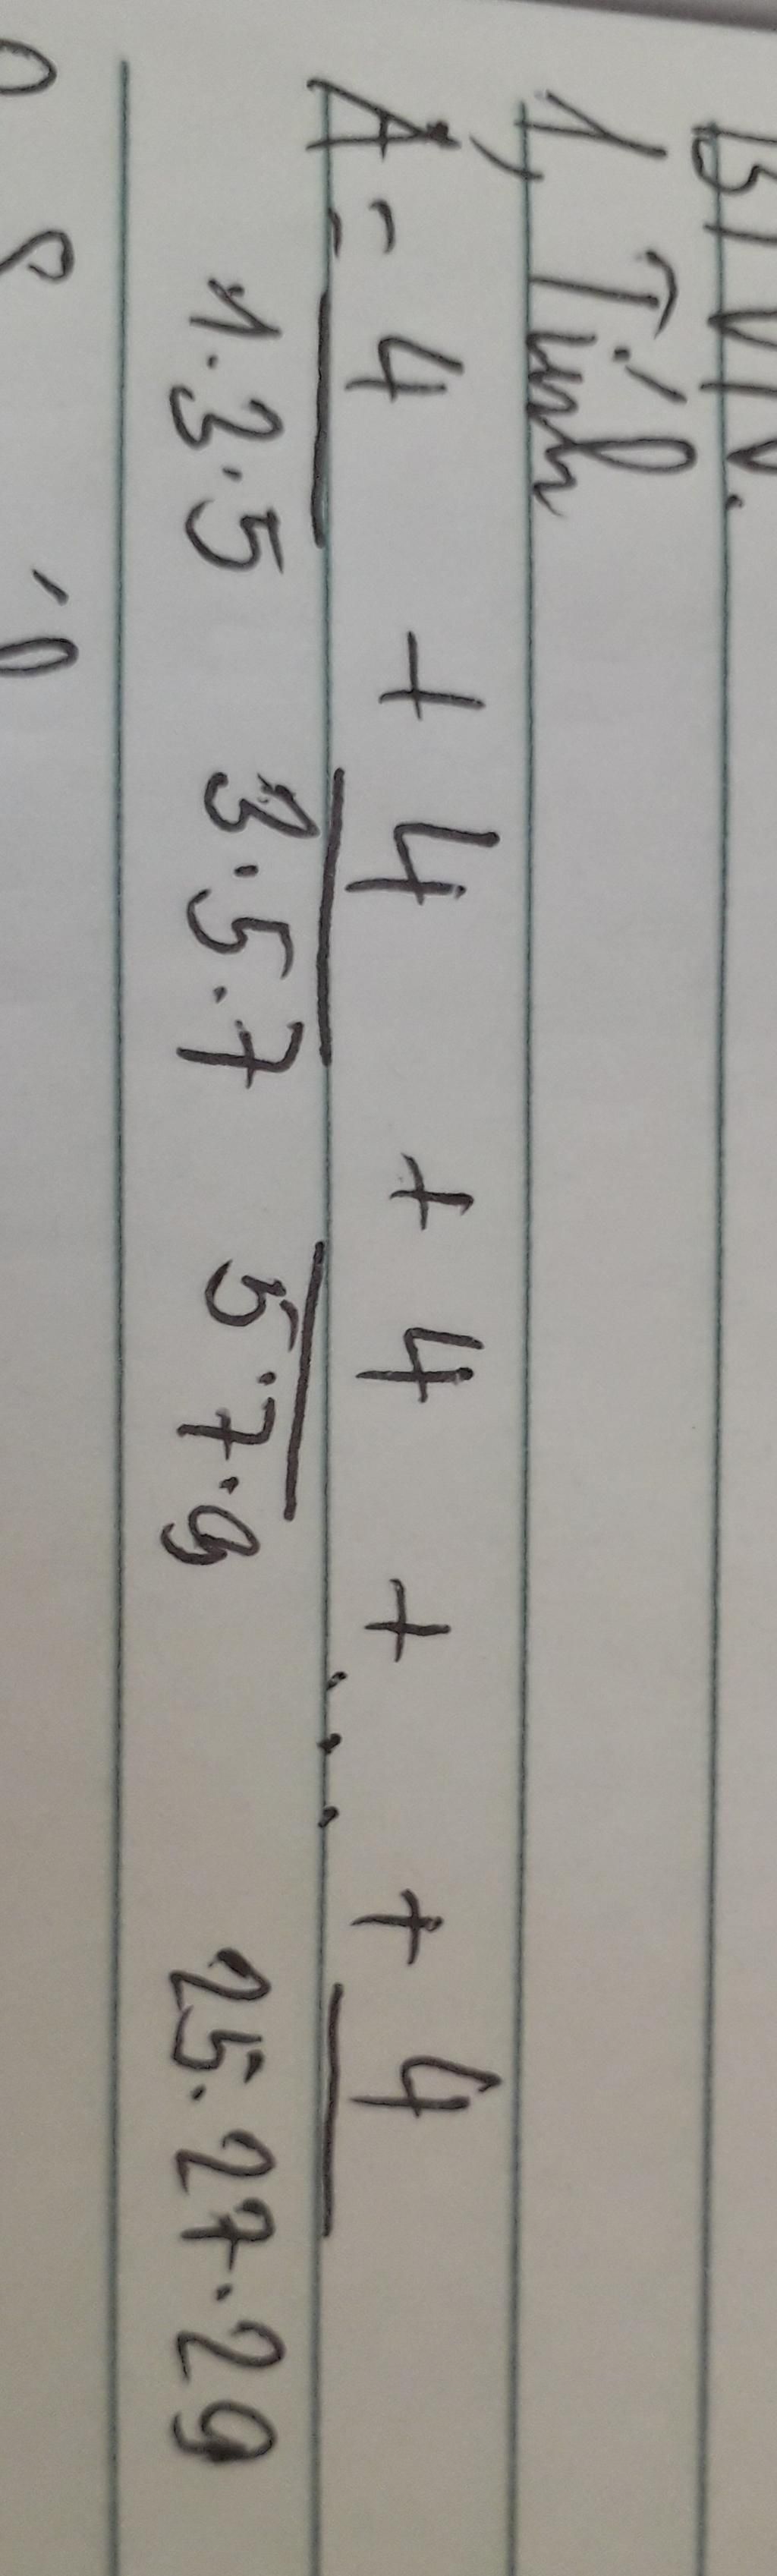 BTVN.
1, Tính
A = 4/1.3.5 + 4/3.5.7 + 4/5.7.9 + ... + 4/25.27.29